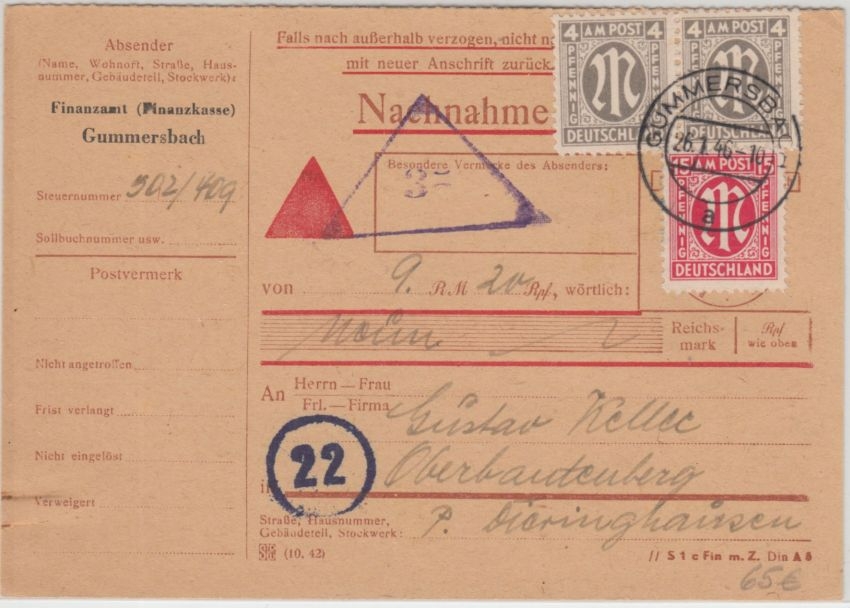 Absender
(Name, Wohnort, Straße, Haus-
nummer, Gebäudeteil, Stockwerk):
Finanzamt (Finanzkasse)
Gummersbach
Steuernummer 502/409
Sollbuchnummer usw.
Postvermerk
Nicht angetroffen
Frist verlangt
Nicht eingelöst
Verweigert
Falls nach außerhalb verzogen, nicht
mit neuer Anschrift zurück
Nachnahme
Besondere Vermerke des Absenders:
4 AM POST 4
PFENNIG PFENNIG
DEUTSCHLAND
4 AM POST 4
PFENNIG
DEUTSCHLAND
GUMMERSBACH
26.1.46-10
a
15 AM POST 15
PFENNIG PFENNIG
DEUTSCHLAND
von 9. RM 20 Rpf, wörtlich:
Neun
Reichs-
mark
Rpf
wie oben
An Herrn — Frau
Frl. — Firma
Gustav Keller
22
Oberbantenberg
P. Dieringhausen
Straße, Hausnummer,
Gebäudeteil, Stockwerk:
(10. 42)
// S 1 c Fin m. Z. Din A 5
65€